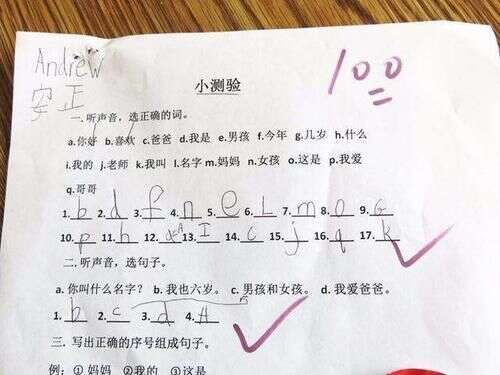 Andrew
安正
100
小测验
一.听声音，选正确的词。
a.你好 b.喜欢 c.爸爸 d.我是 e.男孩 f.今年 g.几岁 h.什么
i.我的 j.老师 k.我叫 l.名字 m.妈妈 n.女孩 o.这是 p.我爱
q.哥哥
1. b 2. d 3. f 4. n 5. e 6. L 7. m 8. o 9. G
10. p 11. h 12. A 13. I 14. c 15. j 16. q 17. k
二.听声音，选句子。
a. 你叫什么名字？ b. 我也六岁。 c. 男孩和女孩。 d. 我爱爸爸。
1. b 2. c 3. d 4. A
三. 写出正确的序号组成句子。
例：①妈妈 ②我的 ③这是